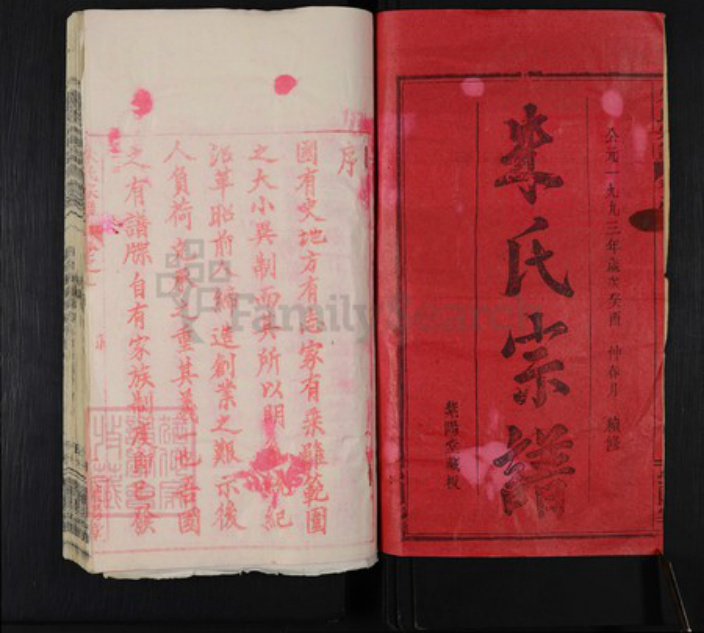 公元一九九三年歲次癸酉 仲春月 續修
朱氏宗譜
紫陽堂藏板
序
國有史地方有志家有乘雖範圍
之大小異制而其所以明 紀
沿革昭前人締造創業之艱示後
人負荷克承之重其義一也吾國
之有譜牒自有家族制度即已發
FamilySearch